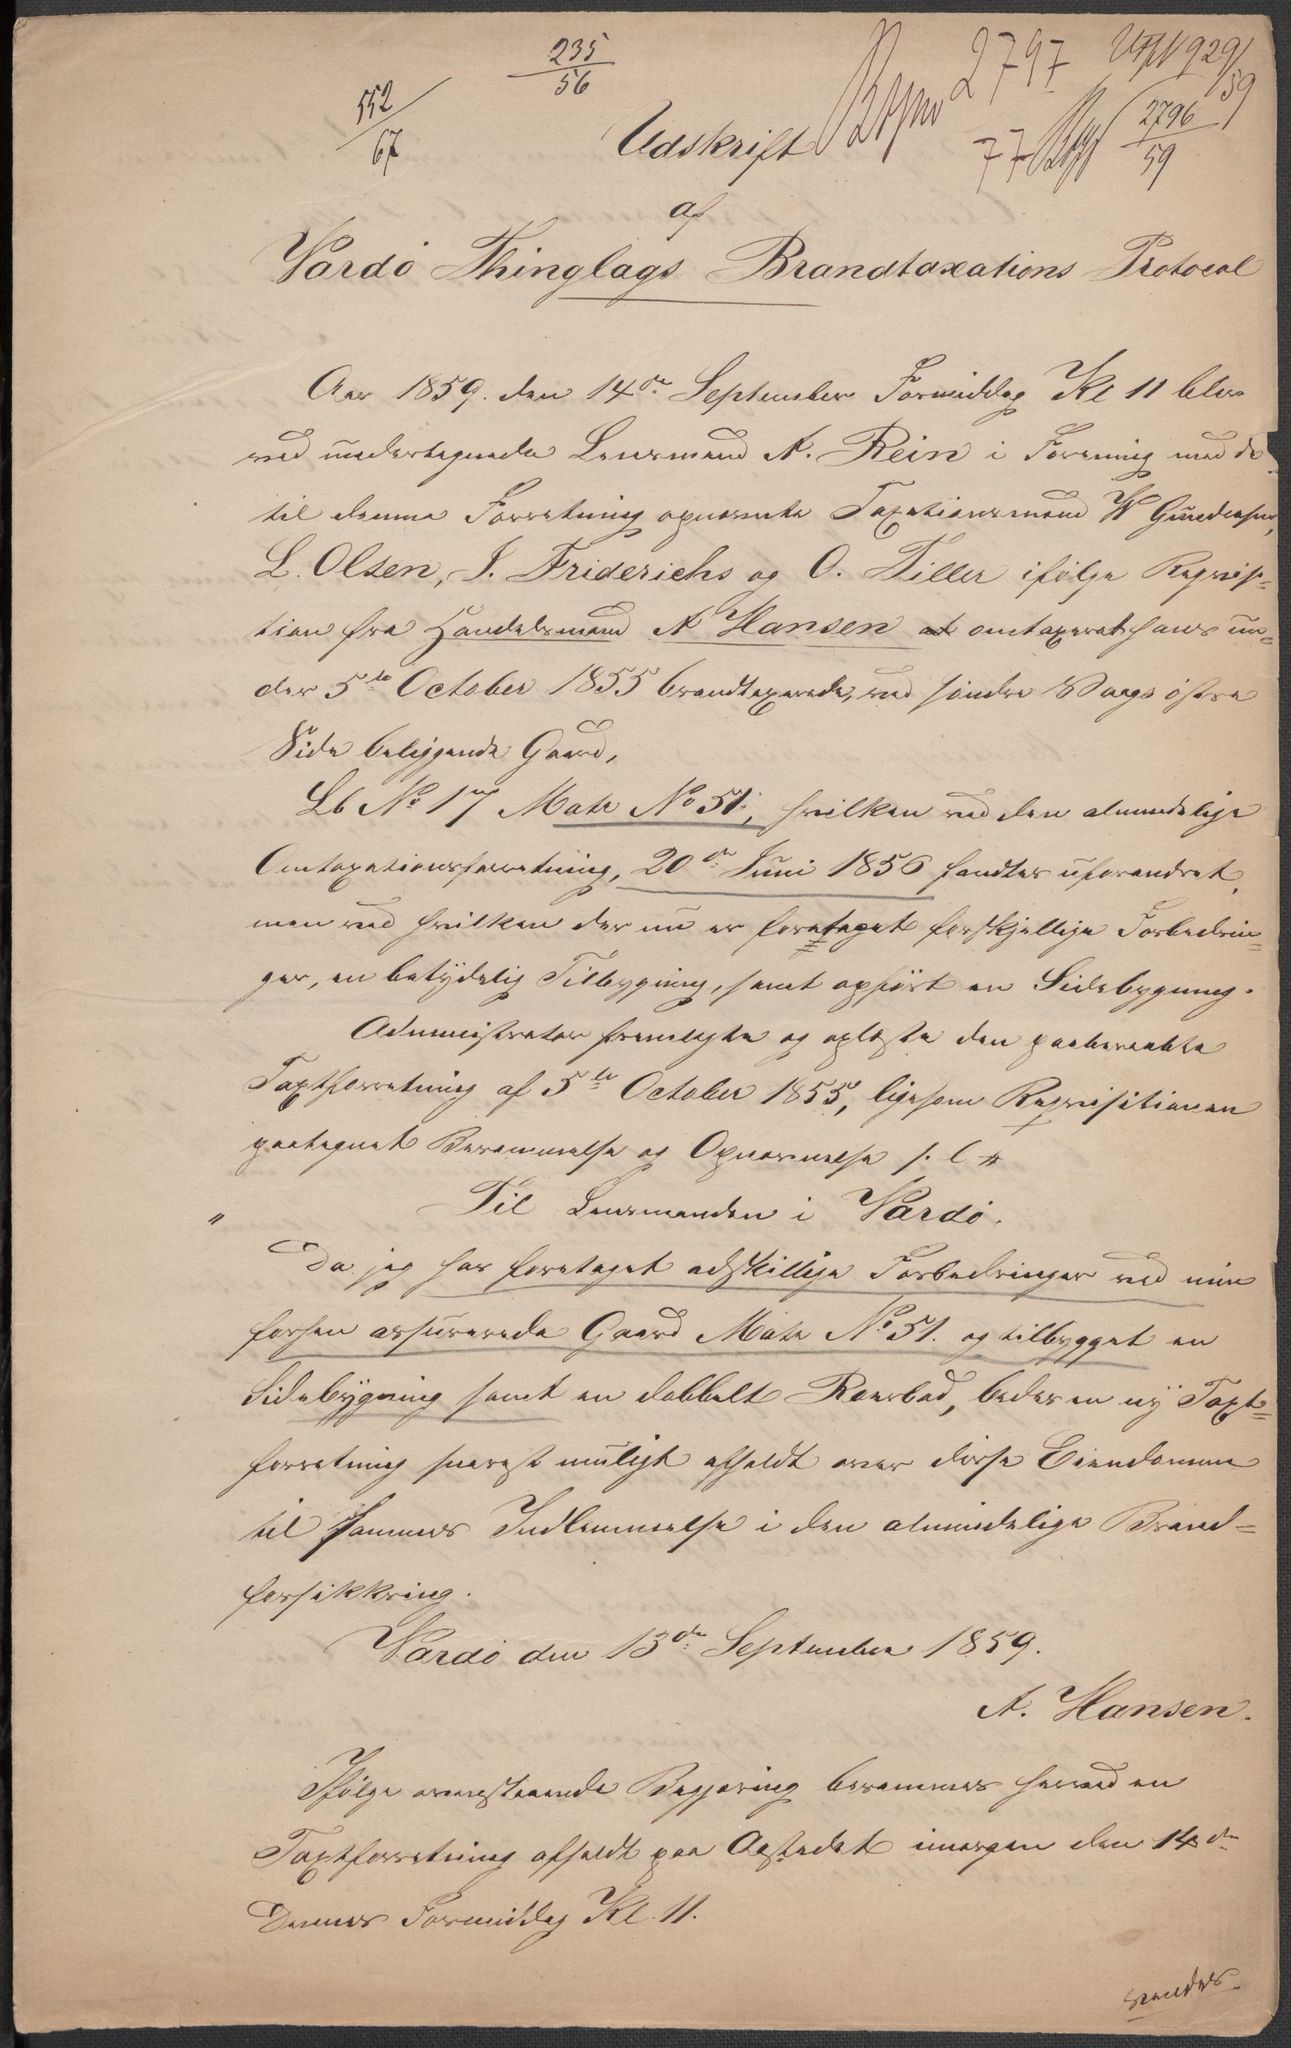 235
56
552
67
2797
929
59
77
2796
59
Udskrift
af
Vardö Thinglags Brandtaxations Protocol
Aar 1859. den 14de September Formiddag Kl 11 blev
ved undertegnede Lensmand A. Rein i Forening med de
til denne Forretning opnævnte Taxationsmænd W Gundersen,
L. Olsen, J. Friderichs og O. Tiller ifölge Reqvisi-
tion fra Handelsmand A Hansen at omtaxerat hans un-
der 5te October 1855 brandtaxerede, ved söndre Vaags östre
Side beliggende Gaard,
Lb No 17 Mate No 51, hvilken ved den almindelige
Omtaxationsforretning, 20de Juni 1856 fandtes uforandret,
men ved hvilken der nu er foretaget forskjellige Forbedrin-
ger, en betydelig Tilbygning, samt opfört en Sidebygning.
Administrator fremlagde og oplæste den paaberaabte
Taxtforretning af 5te October 1855, ligesom Reqvisitionen
paategnet Berammelse og Opnævnelse s. l "
Til Lensmanden i Vardö.
" Da jeg har foretaget adskillige Forbedringer ved min
forhen assurerede Gaard Mate No 51. og tilbygget en
Sidebygning samt en dobbelt Roerbod, bedes en ny Taxt-
forretning snarest muligt afholdt over disse Eiendomme
til sammes Indlemmelse i den almindelige Brand-
forsikkring.
Vardö den 13de September 1859.
A. Hansen.
Ifölge ovenstaaende Begjæring berammes herved en
Taxtforretning afholdt paa Aastedet imorgen den 14de
Dennes Formiddag Kl. 11.